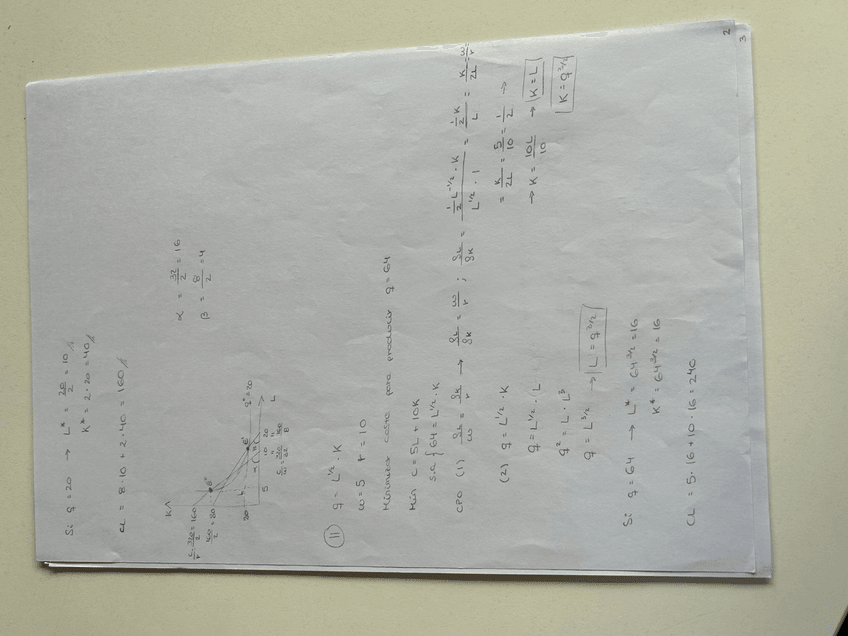 Si q = 20 → L* = 20/2 = 10 //
K* = 2·20 = 40 //
CL = 8·10 + 2·40 = 160 //
α = 32/2 = 16
β = 8/2 = 4
K
C/r = 320/2 = 160
160/2 = 80
20
5 10 20
q° = 20
L
(11) q = L^1/2 · K
w = 5 r = 10
Minimizar coste para producir q = 64
Min C = 5L + 10K
s.a { 64 = L^1/2 · K
CPO (1) qL/w = qK/r → qL/qK = w/r ; qL/qK = (1/2 L^-1/2 · K)/(L^1/2 · 1) = (1/2 K)/L = K/2L = w/r =
= K/2L = 5/10 = 1/2 →
→ K = 10L/10 → K = L
(2) q = L^1/2 · K
q = L^1/2 · L
q² = L · L³
q = L^3/2 → L = q^3/2
K = q^3/2
Si q = 64 → L* = 64^3/2 = 16
K* = 64^3/2 = 16
CL = 5·16 + 10·16 = 240
2
3